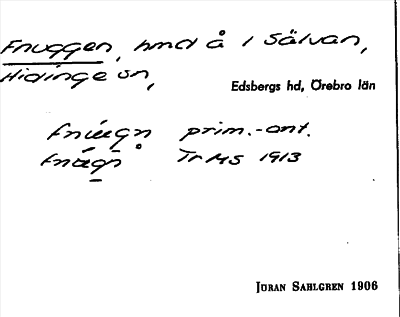 Fnuggen, hmd å i Sälvan,
Hidinge sn,
Edsbergs hd, Örebro län
prim.-ant.
TrMS 1913
JÖRAN SAHLGREN 1906